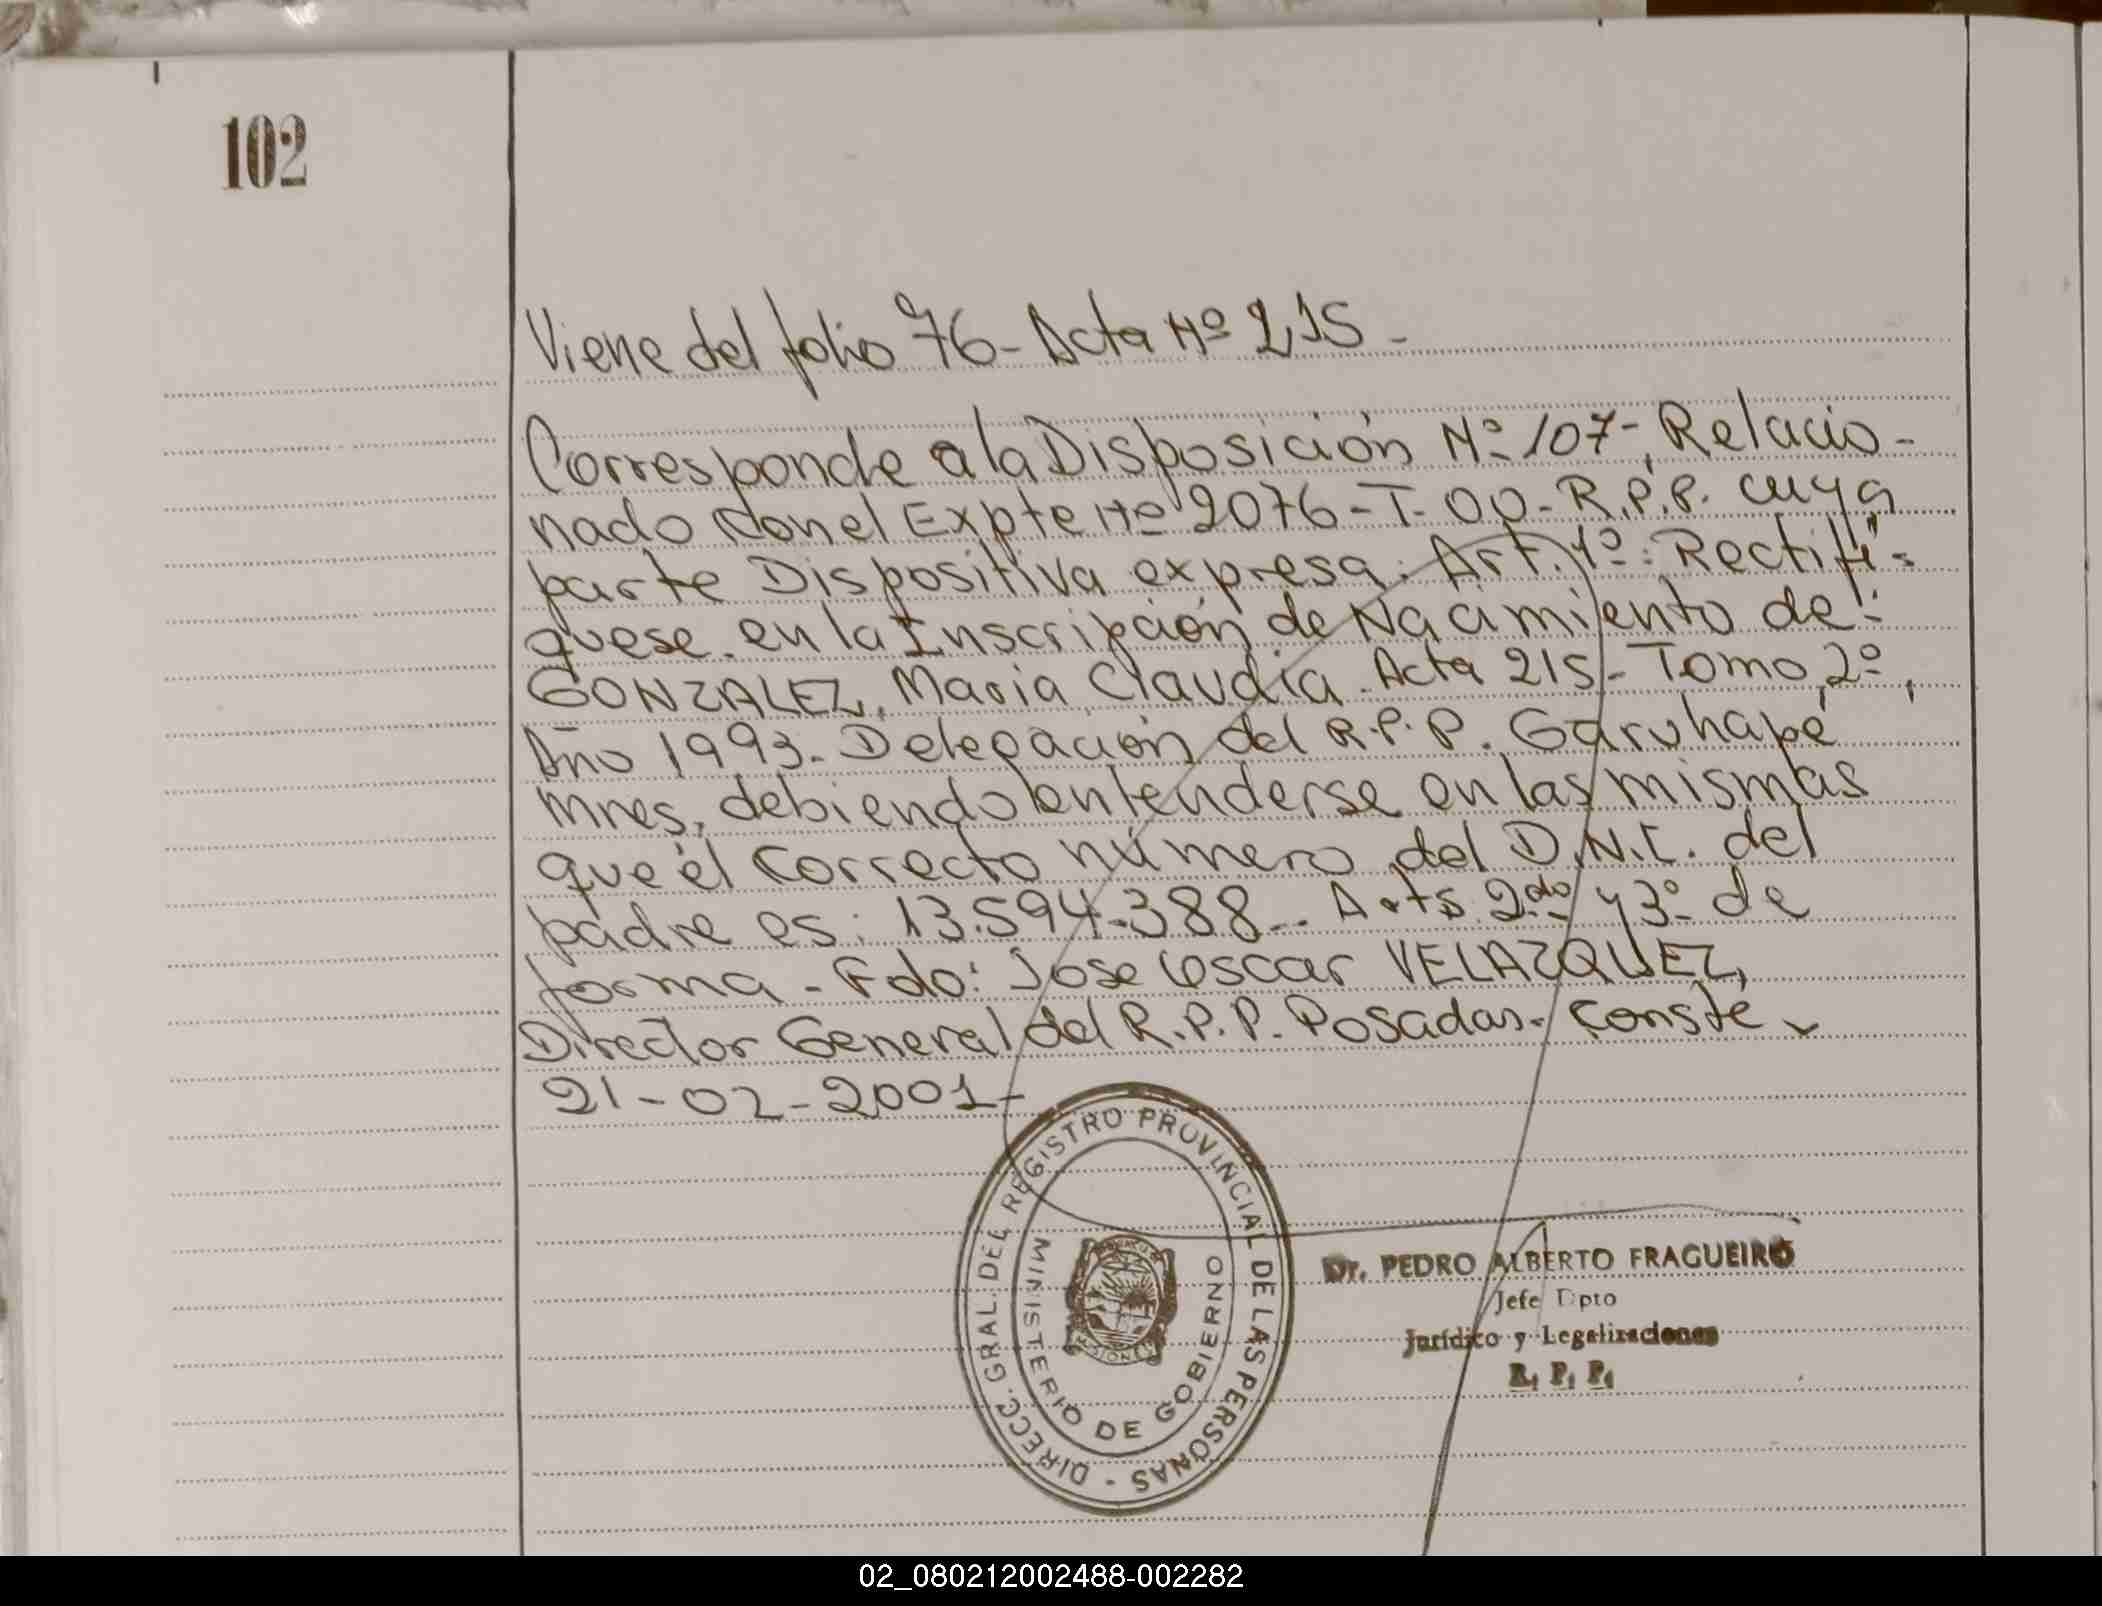 102
Viene del folio 76- Acta Nº 215-
Corresponde a la Disposición Nº 107-, Relacio-
nado con el Expte Nº 2076-T-00-R.P.P. cuya
parte Dispositiva expresa: Art. 1º: Rectifi=
quese en la Inscripción de Nacimiento de:
GONZALEZ, Maria Claudia. Acta 215- Tomo 2º,
Año 1993- Delegación del R.P.P. Garuhapé
Mnes, debiendo entenderse en las mismas
que él correcto número del D.N.I. del
padre es: 13.594.388-. Arts 2do y 3º de
forma - Fdo: Jose Oscar VELAZQUEZ,
Director General del R.P.P. Posadas. Conste-
21-02-2001-
DIRECC. GRAL. DEL REGISTRO PROVINCIAL DE LAS PERSONAS -
MINISTERIO DE GOBIERNO
MISIONES
Dr. PEDRO ALBERTO FRAGUEIRO
Jefe Dpto
Jurídico y Legalizaciones
R. P. P.
02_080212002488-002282